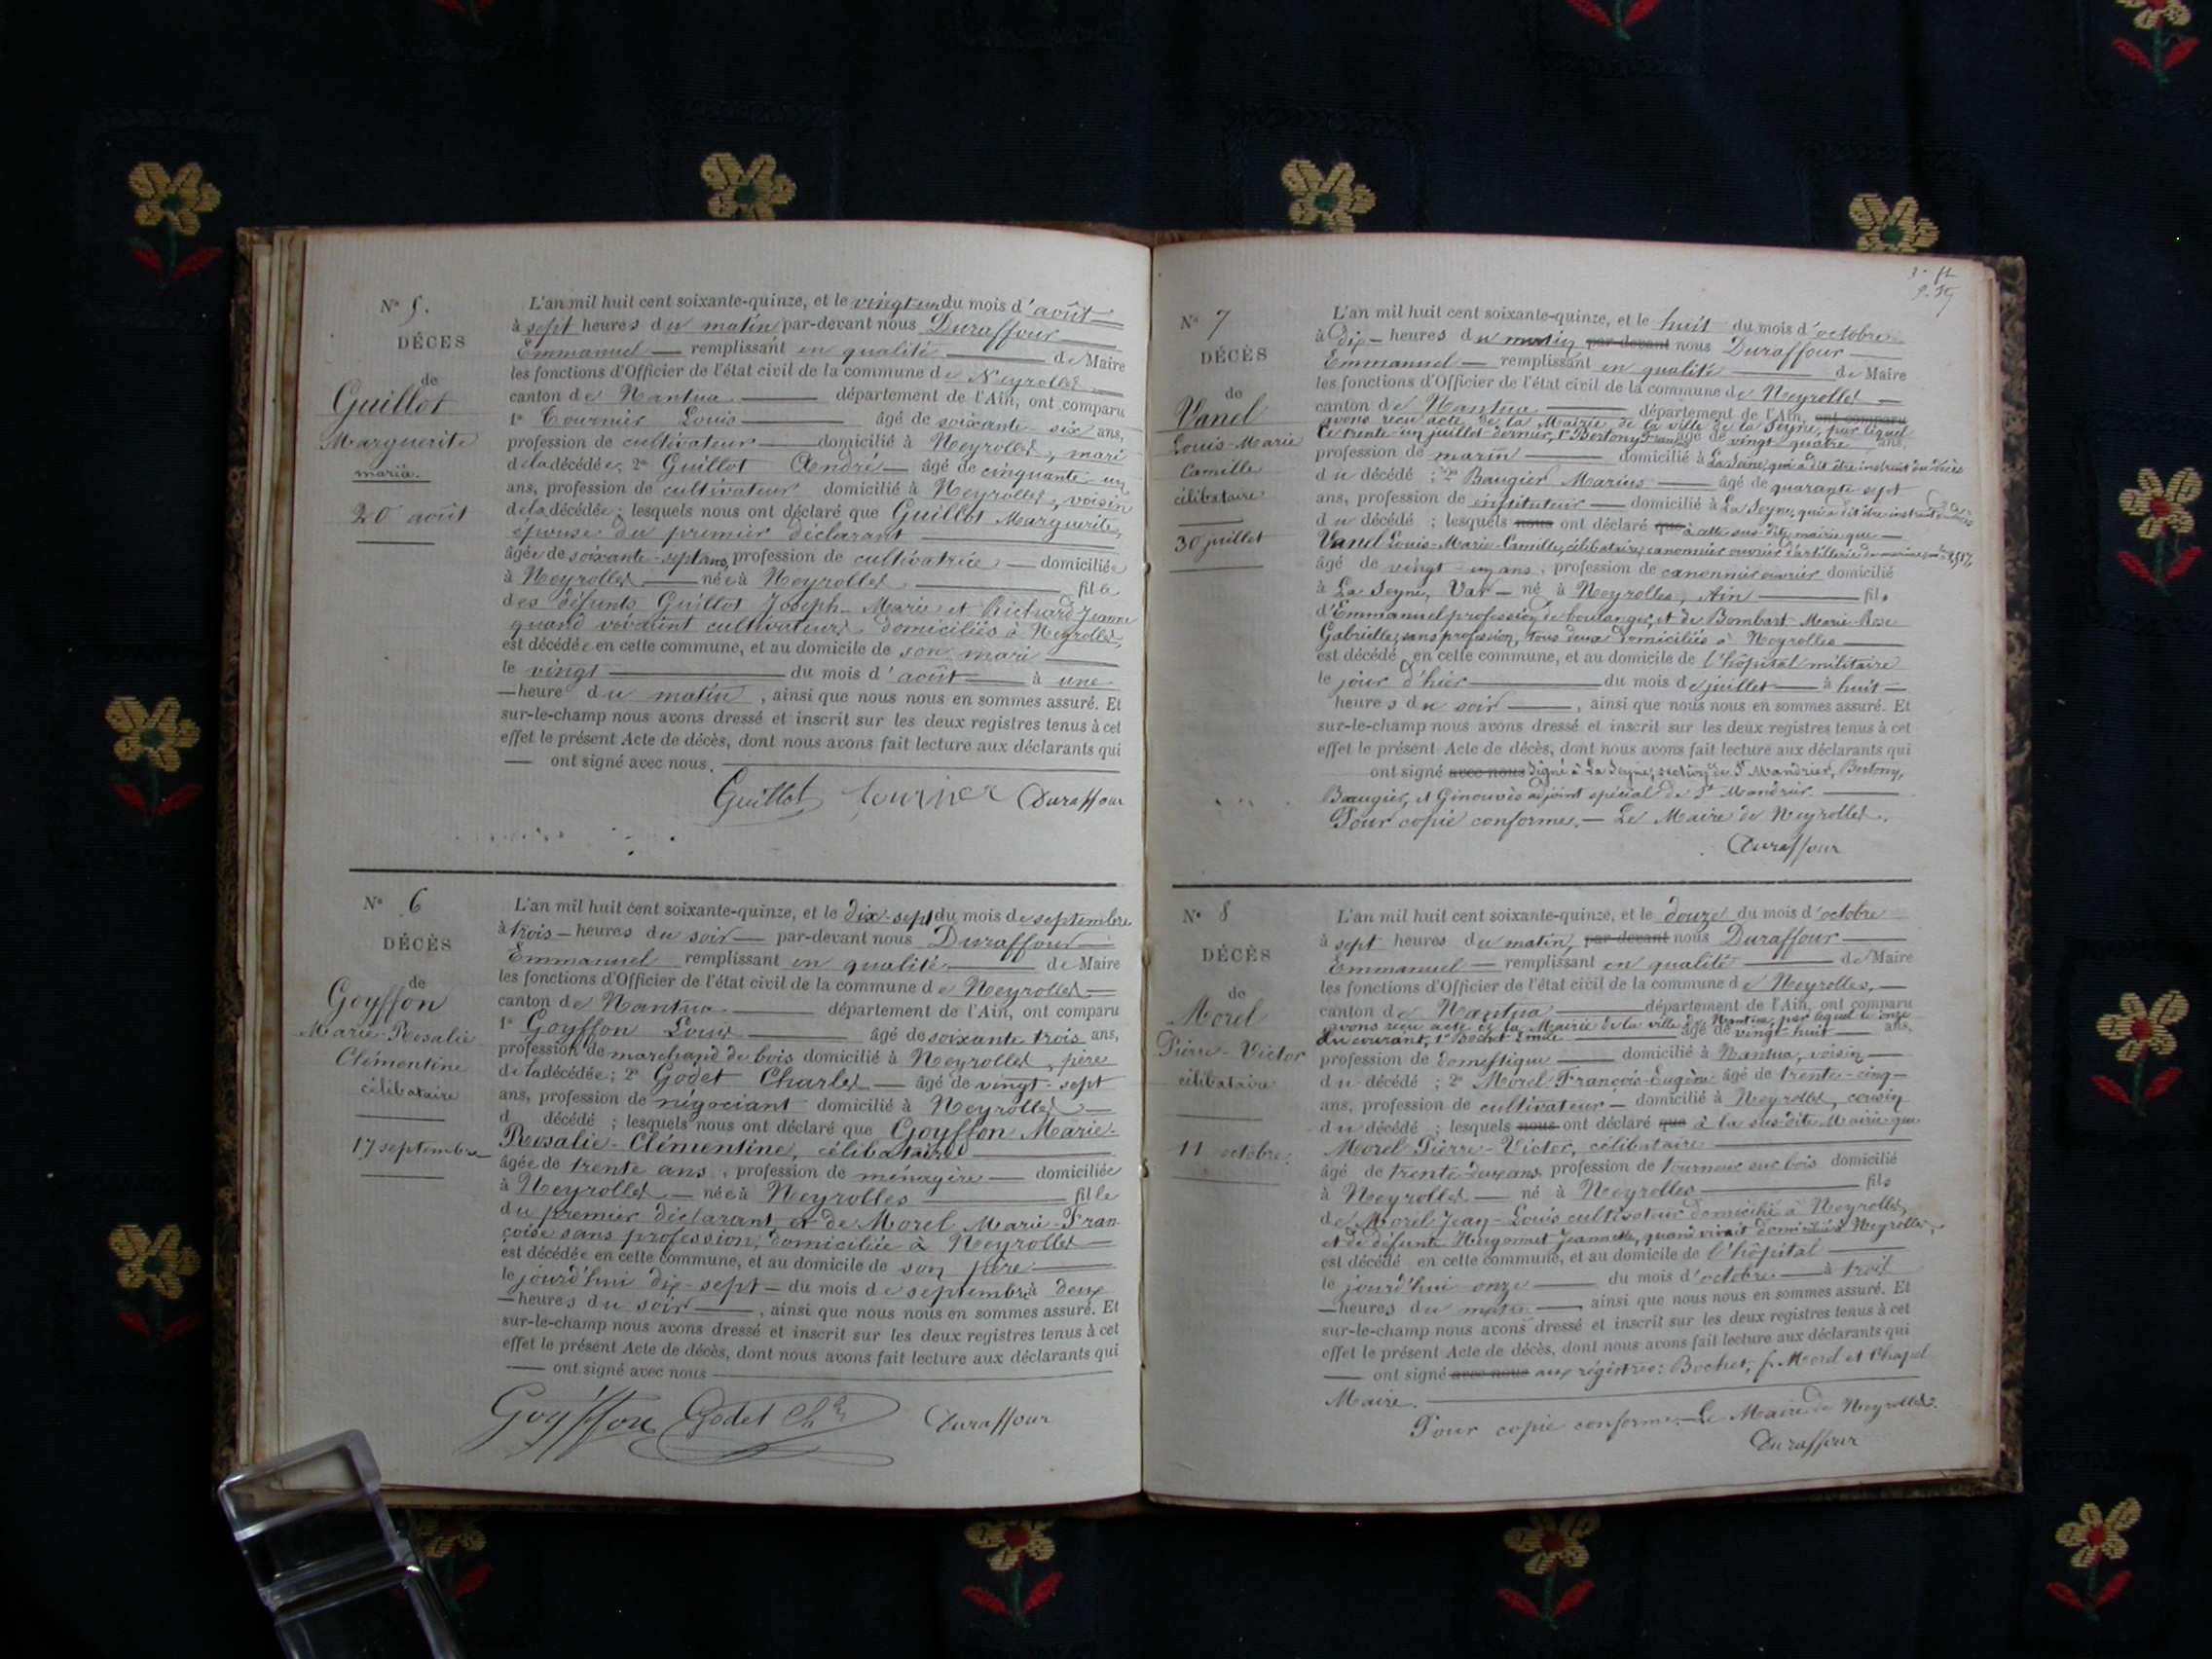 N° 5.
DÉCÈS
de
Guillot
Marguerite
mariée.
20 août
L'an mil huit cent soixante-quinze, et le vingt un du mois d'août
à sept heures du matin par-devant nous Duraffour
Emmanuel remplissant en qualité de Maire
les fonctions d'Officier de l'état civil de la commune de Neyrolles
canton de Nantua département de l'Ain, ont comparu
1° Tournier Louis âgé de soixante six ans,
profession de cultivateur domicilié à Neyrolles, mari
de la décédée; 2° Guillot André âgé de cinquante un
ans, profession de cultivateur domicilié à Neyrolles, voisin
de la décédée; lesquels nous ont déclaré que Guillot Marguerite,
épouse du premier déclarant
âgée de soixante-sept ans, profession de cultivatrice domiciliée
à Neyrolles née à Neyrolles fille
des défunts Guillot Joseph-Marie et Richard Jeanne
quand vivaient cultivateurs domiciliés à Neyrolles,
est décédée en cette commune, et au domicile de son mari
le vingt du mois d'août à une
heure du matin, ainsi que nous nous en sommes assuré. Et
sur-le-champ nous avons dressé et inscrit sur les deux registres tenus à cet
effet le présent Acte de décès, dont nous avons fait lecture aux déclarants qui
ont signé avec nous.
Guillot tournier Duraffour
N° 6
DÉCÈS
de
Goyffon
Marie-Rosalie
Clémentine
célibataire
17 septembre
L'an mil huit cent soixante-quinze, et le dix-sept du mois de septembre
à trois heures du soir par-devant nous Duraffour
Emmanuel remplissant en qualité de Maire
les fonctions d'Officier de l'état civil de la commune de Neyrolles
canton de Nantua département de l'Ain, ont comparu
1° Goyffon Louis âgé de soixante trois ans,
profession de marchand de bois domicilié à Neyrolles, père
de la décédée; 2° Godet Charles âgé de vingt-sept
ans, profession de négociant domicilié à Neyrolles
d décédé ; lesquels nous ont déclaré que Goyffon Marie-
Rosalie-Clémentine, célibataire
âgée de trente ans, profession de ménagère domiciliée
à Neyrolles née à Neyrolles fille
du premier déclarant et de Morel Marie-Fran
çoise sans profession, domiciliée à Neyrolles
est décédée en cette commune, et au domicile de son père
le jourd'hui dix-sept du mois de septembre à deux
heures du soir, ainsi que nous nous en sommes assuré. Et
sur-le-champ nous avons dressé et inscrit sur les deux registres tenus à cet
effet le présent Acte de décès, dont nous avons fait lecture aux déclarants qui
ont signé avec nous
Goyffon Godet Ch Duraffour
N° 7
DÉCÈS
de
Vanel
Louis-Marie
Camille
célibataire
30 juillet
L'an mil huit cent soixante-quinze, et le huit du mois d'octobre
à dix heures du matin par-devant nous Duraffour
Emmanuel remplissant en qualité de Maire
les fonctions d'Officier de l'état civil de la commune de Neyrolles
canton de Nantua département de l'Ain, ont comparu
avons reçu acte de la Mairie de la ville de la Seyne, par lequel
le trente-un juillet dernier, 1° Bertony âgé de vingt quatre ans,
profession de marin domicilié à La Seine, qui a dit être instruit du décès
du décédé ; 2° Baugier Marius âgé de quarante sept
ans, profession de instituteur domicilié à La Seyne, qui a dit être instruit du décès
du décédé ; lesquels nous ont déclaré que à cette sus dite mairie que
Vanel Louis-Marie-Camille, célibataire, canonnier ouvrier d'artillerie de marine,
âgé de vingt-un ans, profession de canonnier ouvrier domicilié
à La Seyne, Var né à Neyrolles, Ain fils
d'Emmanuel profession de boulanger, et de Bombart Marie-Rose
Gabrielle, sans profession, tous deux domiciliés à Neyrolles
est décédé en cette commune, et au domicile de l'hôpital militaire
le jour d'hier du mois de juillet à huit
heures du soir, ainsi que nous nous en sommes assuré. Et
sur-le-champ nous avons dressé et inscrit sur les deux registres tenus à cet
effet le présent Acte de décès, dont nous avons fait lecture aux déclarants qui
ont signé avec nous Signé à La Seyne, section de St Mandrier, Bertony,
Baugier, et Génouvès adjoint spécial de St Mandrier.
Pour copie conforme. Le Maire de Neyrolles.
Duraffour
N° 8
DÉCÈS
de
Morel
Pierre-Victor
célibataire
11 octobre
L'an mil huit cent soixante-quinze, et le douze du mois d'octobre
à sept heures du matin, par-devant nous Duraffour
Emmanuel remplissant en qualité de Maire
les fonctions d'Officier de l'état civil de la commune de Neyrolles,
canton de Nantua département de l'Ain, ont comparu
avons reçu acte de la Mairie de la ville de Nantua, par lequel le onze
du courant, 1° Bochet Emile âgé de vingt-huit ans,
profession de domestique domicilié à Nantua, voisin
du décédé ; 2° Morel François-Eugène âgé de trente-cinq
ans, profession de cultivateur domicilié à Neyrolles, cousin
du décédé ; lesquels nous ont déclaré que à la sus dite Mairie que
Morel Pierre-Victor, célibataire
âgé de trente-deux ans, profession de tourneur sur bois domicilié
à Neyrolles né à Neyrolles fils
de Morel Jean-Louis cultivateur domicilié à Neyrolles,
et de défunte Hugonnet Jeannette, quand vivait domiciliée Neyrolles,
est décédé en cette commune, et au domicile de l'hôpital
le jourd'hui onze du mois d'octobre à trois
heures du matin, ainsi que nous nous en sommes assuré. Et
sur-le-champ nous avons dressé et inscrit sur les deux registres tenus à cet
effet le présent Acte de décès, dont nous avons fait lecture aux déclarants qui
ont signé avec nous aux régistres: Bochet, f. Morel et Chapel
Maire.
Pour copie conforme. Le Maire de Neyrolles.
Duraffour